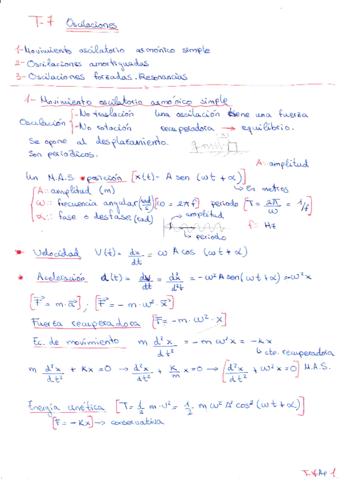 T-7 Oscilaciones
1- Movimiento oscilatorio armónico simple
2- Oscilaciones amortiguadas
3- Oscilaciones forzadas. Resonancias
1- Movimiento oscilatorio armónico simple
Oscilación
- No traslación
- No rotación
Una oscilación tiene una fuerza
recuperadora → equilibrio.
Se opone al desplazamiento.
Son periódicos.
A: amplitud
Un M.A.S posición [x(t) = A sen (ωt + α)]
↳ En metros
A: amplitud (m)
ω: frecuencia angular (rad/s) [ω = 2πf] periodo [T = 2π/ω = 1/f]
α: fase o desfase (rad)
amplitud
f = Hz
↳ periodo
* Velocidad V(t) = dx/dt = ω A cos (ωt + α)
* Aceleración a(t) = dv/dt = d²x/d²t = -ω² A sen(ωt + α) = -ω² x
[F = m·a], [F = -m·ω²·x]
Fuerza recuperadora [F = -m·ω²·x]
Ec. de movimiento m d²x/dt² = -m ω² x = -kx
↳ cte. recuperadora
m d²x/dt² + Kx = 0 → d²x/dt² + K/m x = 0 → [d²x/dt² + ω²x = 0] M.A.S.
Energía cinética [T = 1/2 m·v² = 1/2 · m ω² A² cos² (ωt + α)]
[F = -Kx] → conservativa